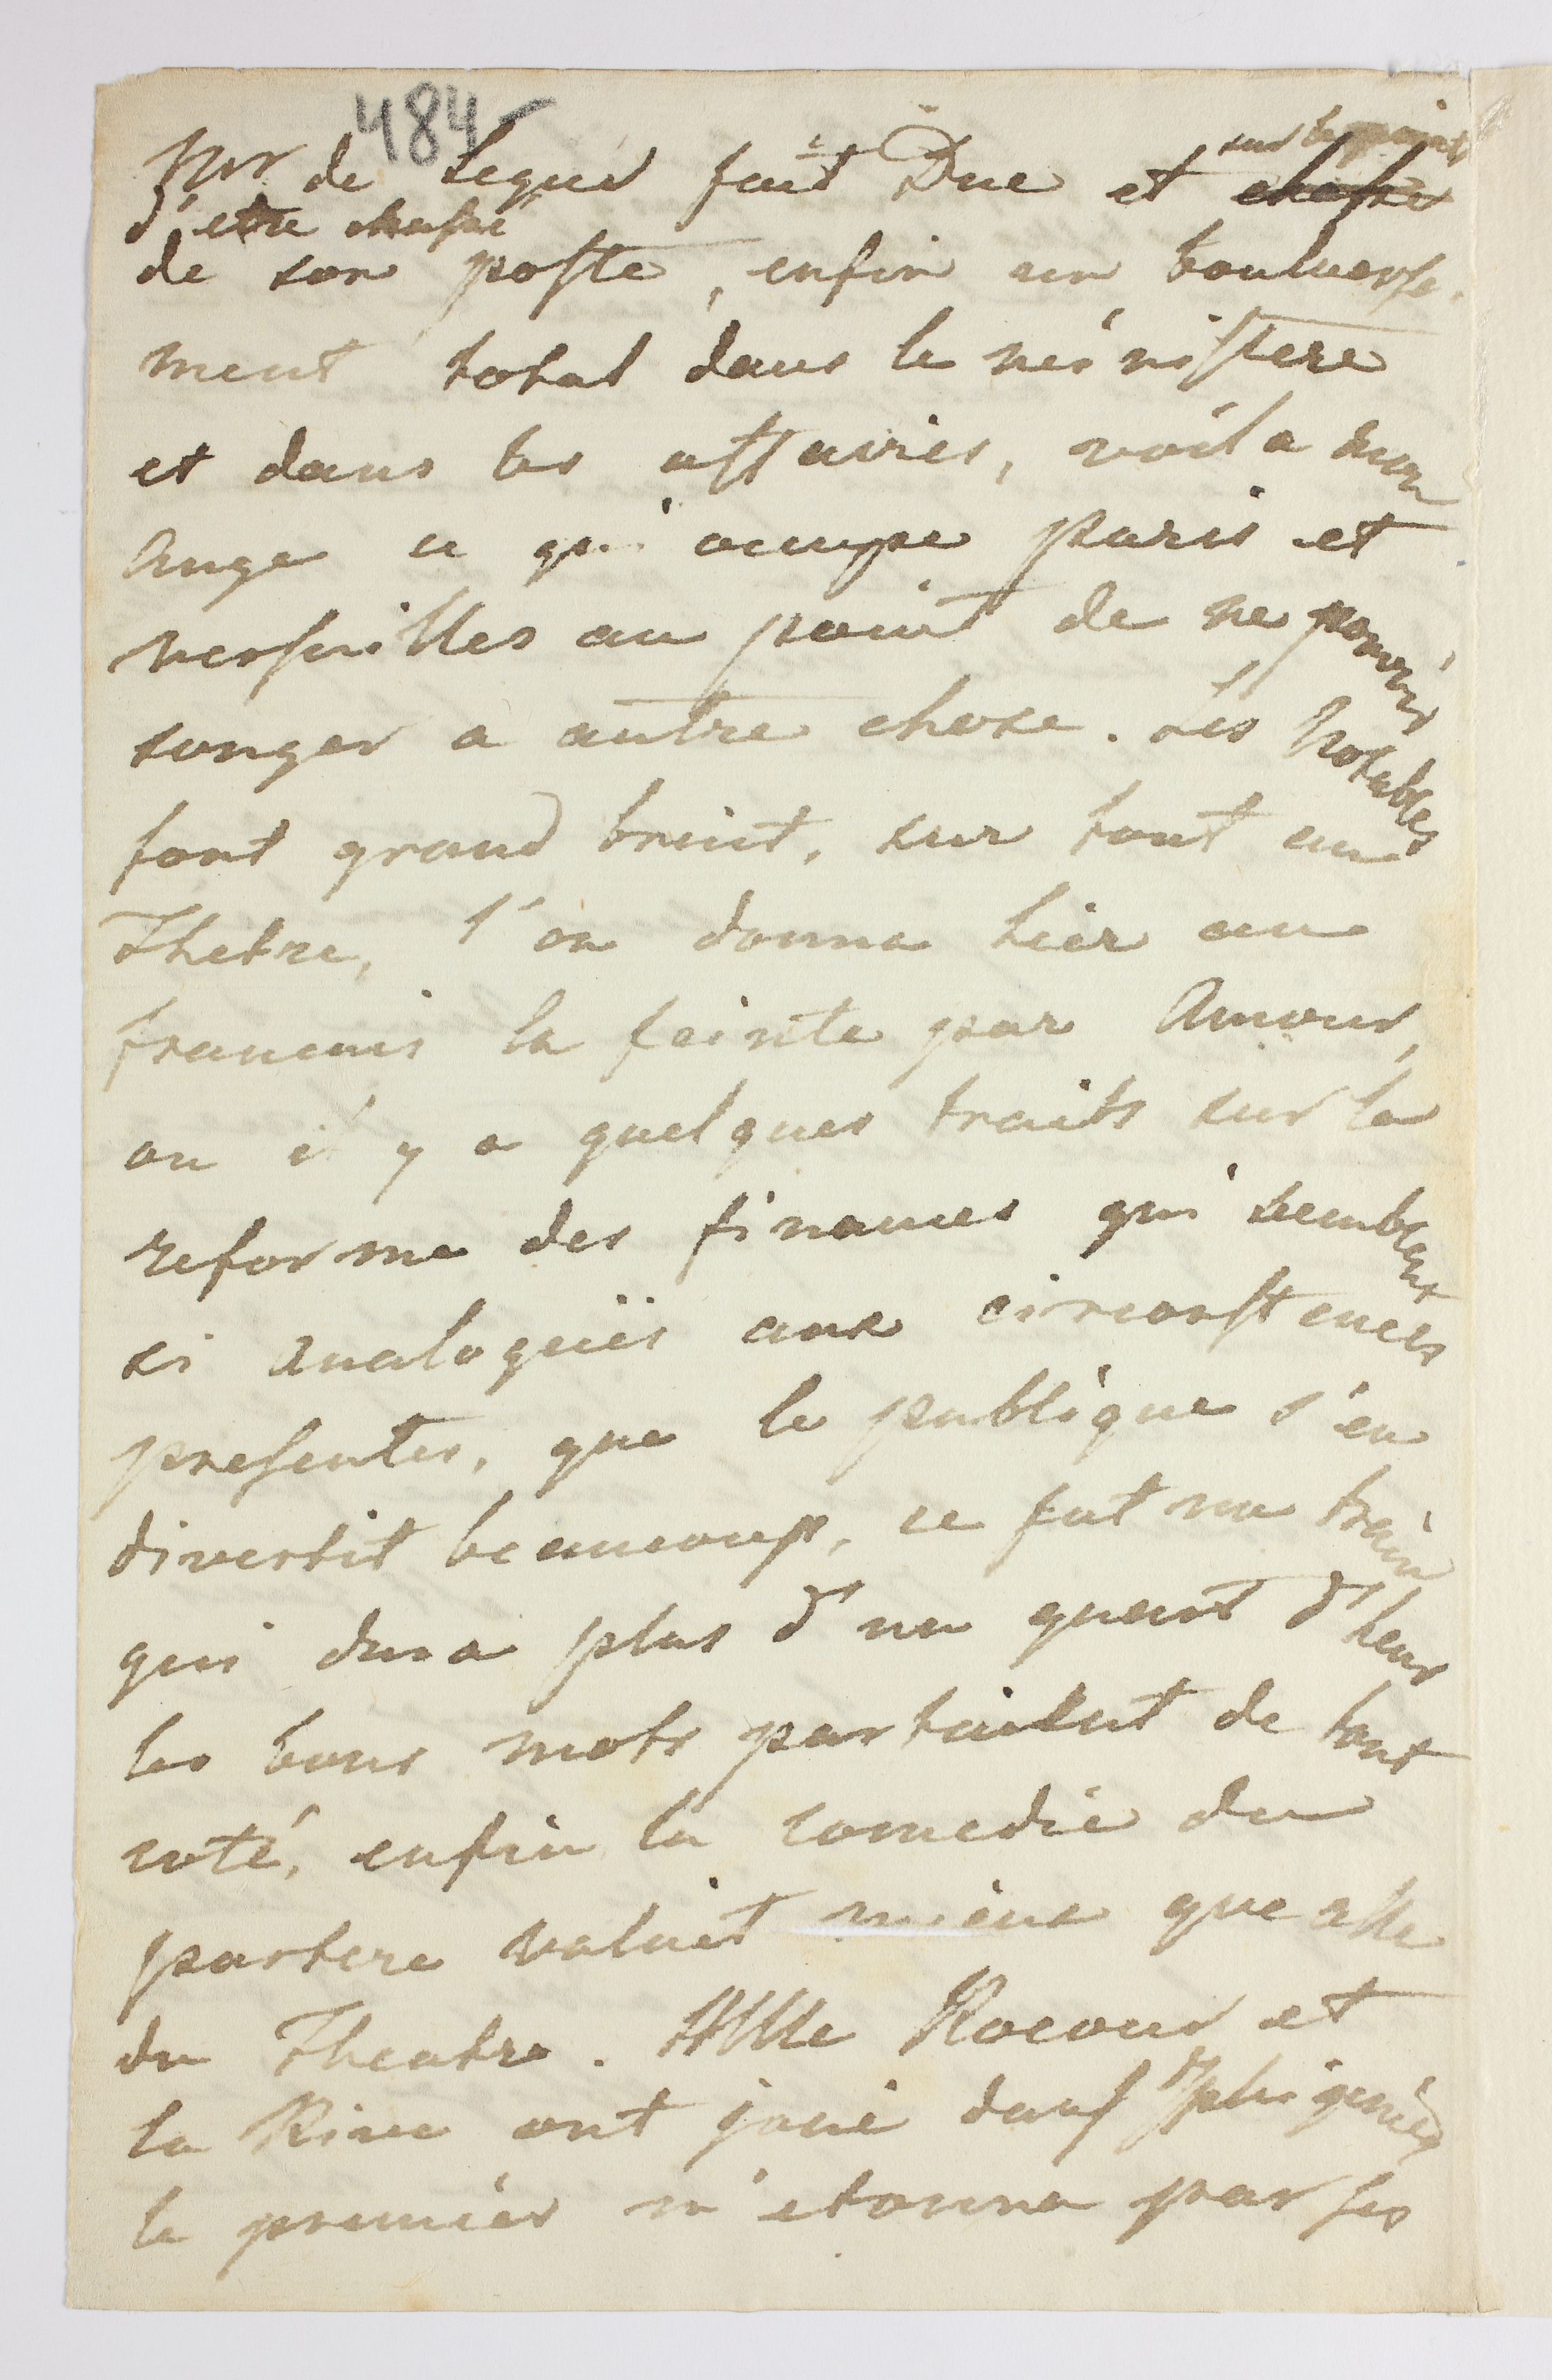 484
Mr de Segur fait Duc et sur le point
d'etre chassé
de son poste, enfin un bouluerse-
ment total dans le ministere
et dans les affaires, voila mon
Ange ce qui occupe paris et
versailles au point de ne pouvoir
songer a autre chose. Les Notables
font grand bruit, sur tout au
Thetre, l'on donna hier au
francais la feinte par Amour,
ou il y a quelques traits sur la
reforme des finances qui semblent
si analoguës aux circonstences
presentes, que le publique s'en
divertit beaucoup, ce fut un train
qui dura plus d'un quart d'heur
les bons mots partaient de tout
coté, enfin la comedie du
partere valait mieux que elle
du Theatre. Mlle Rocour et
la Rive ont joué dans Iphigenie
le premier m'etonna par ses